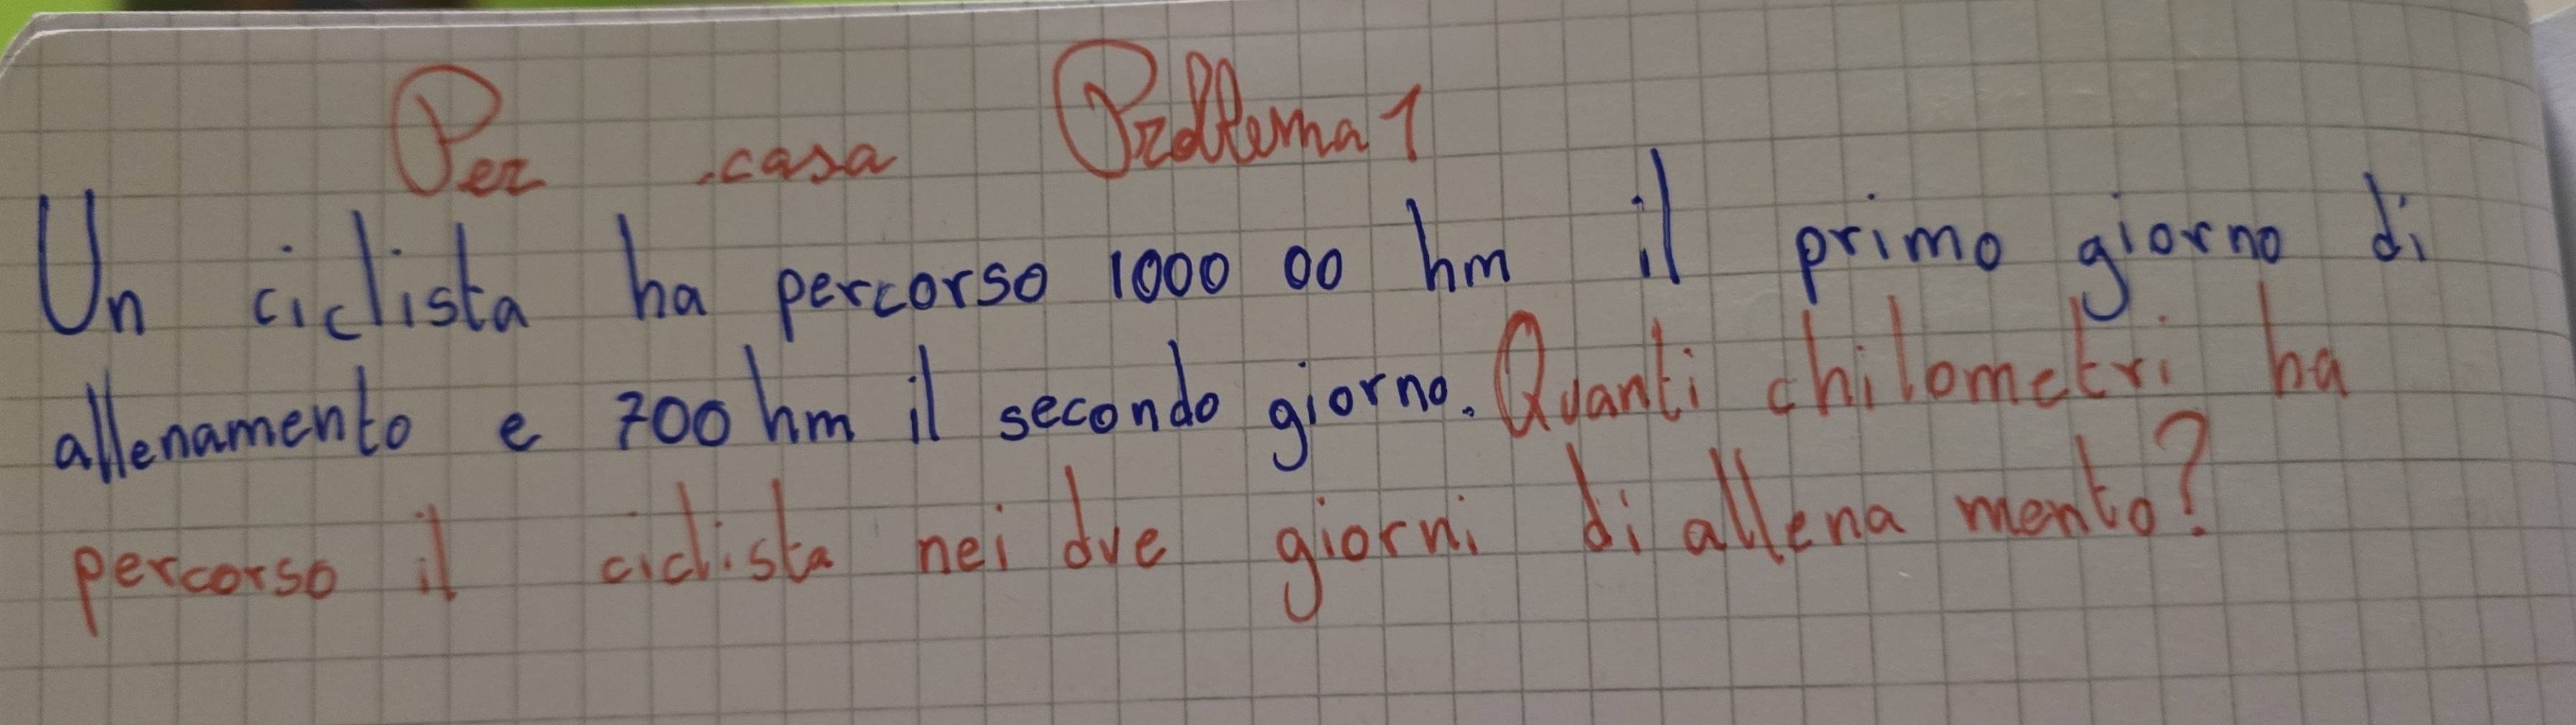 Per casa Problema 1
Un ciclista ha percorso 1000 00 hm il primo giorno di
allenamento e 700 hm il secondo giorno. Quanti chilometri ha
percorso il ciclista nei due giorni di allena mento?